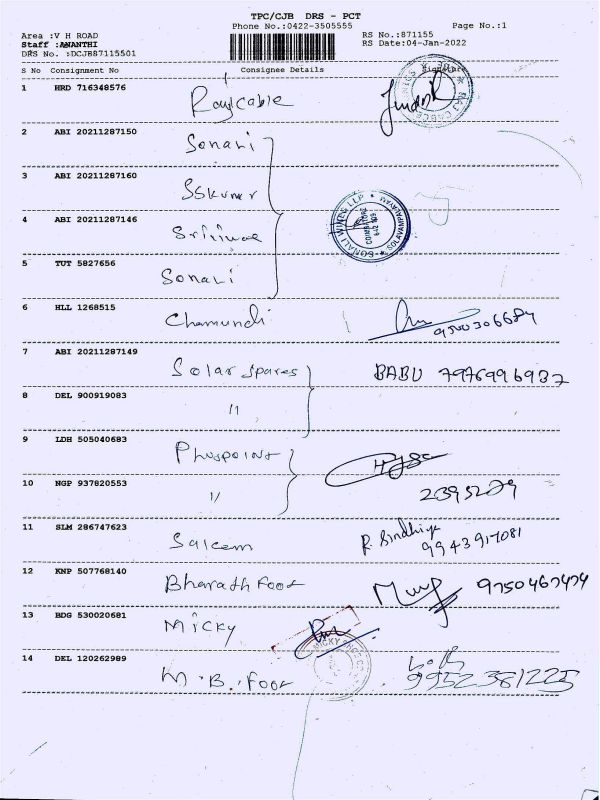 TPC/CJB DRS - PCT
Phone No.:0422-3505555
Page No.:1
Area :V H ROAD
Staff :ANANTHI
DRS No. :DCJB87115501
RS No.:871155
RS Date:04-Jan-2022
S No Consignment No Consignee Details Signature
1 HRD 716348576 Rajcable
2 ABI 20211287150 Sonali
3 ABI 20211287160 SSkumar
4 ABI 20211287146
SONALI WINGS LLP * SOLAVAMPALAYAM
COIMBATORE
642 109
5 TUT 5827656 Sonali
6 HLL 1268515 Chamundi
7 ABI 20211287149 Solar Spares BABU 7976996937
8 DEL 900919083 11
9 LDH 505040683
10 NGP 937820553 11 2395279
11 SLM 286747623 Saleem R. Sindhiya
9943917081
12 KNP 507768140 Bharath Foot 9750467474
13 BDG 530020681 Micky
14 DEL 120262989 M.B. Foot 9952381225